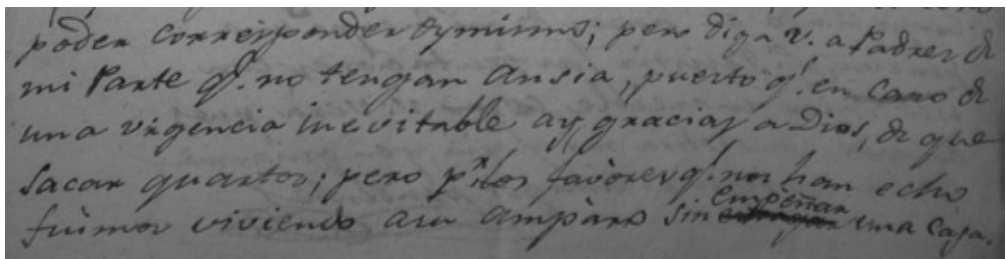 poder corresponder dyminus; pero diga v. a Padres de
mi Parte q.e no tengan ansia, puesto q.e en caso de
una vrgencia inevitable ay gracias a Dios, de que
sacar quartos; pero p.r los favòres q.e nos han echo
fuimos viviendo asu ampàro sin empeñar una casa.